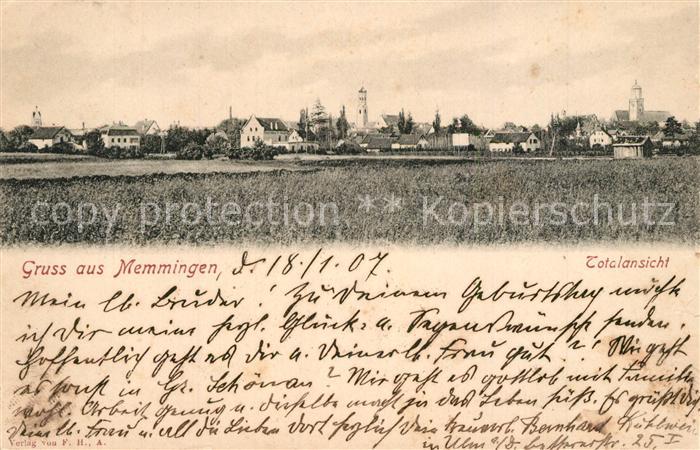 copy protection ** Kopierschutz
Gruss aus Memmingen, d. 18/1. 07. Totalansicht
Mein lb. Bruder! Zu Deinem Geburtstag möcht
ich Dir meine herzl. Glück- u. Segenswünsche senden.
Hoffentlich geht es Dir u. Deiner lb. Frau gut? Wie geht
es sonst in Gr. Schönau? Mir geht es gottlob mit Familie
wohl. Arbeit genug u. dieselbe macht ja das Leben süß. Es grüßt Dich
Deine lb. Frau u. all die Lieben dort herzlich Dein Bernhard
in Ulm a/D. 25, I
Verlag von F. H., A.